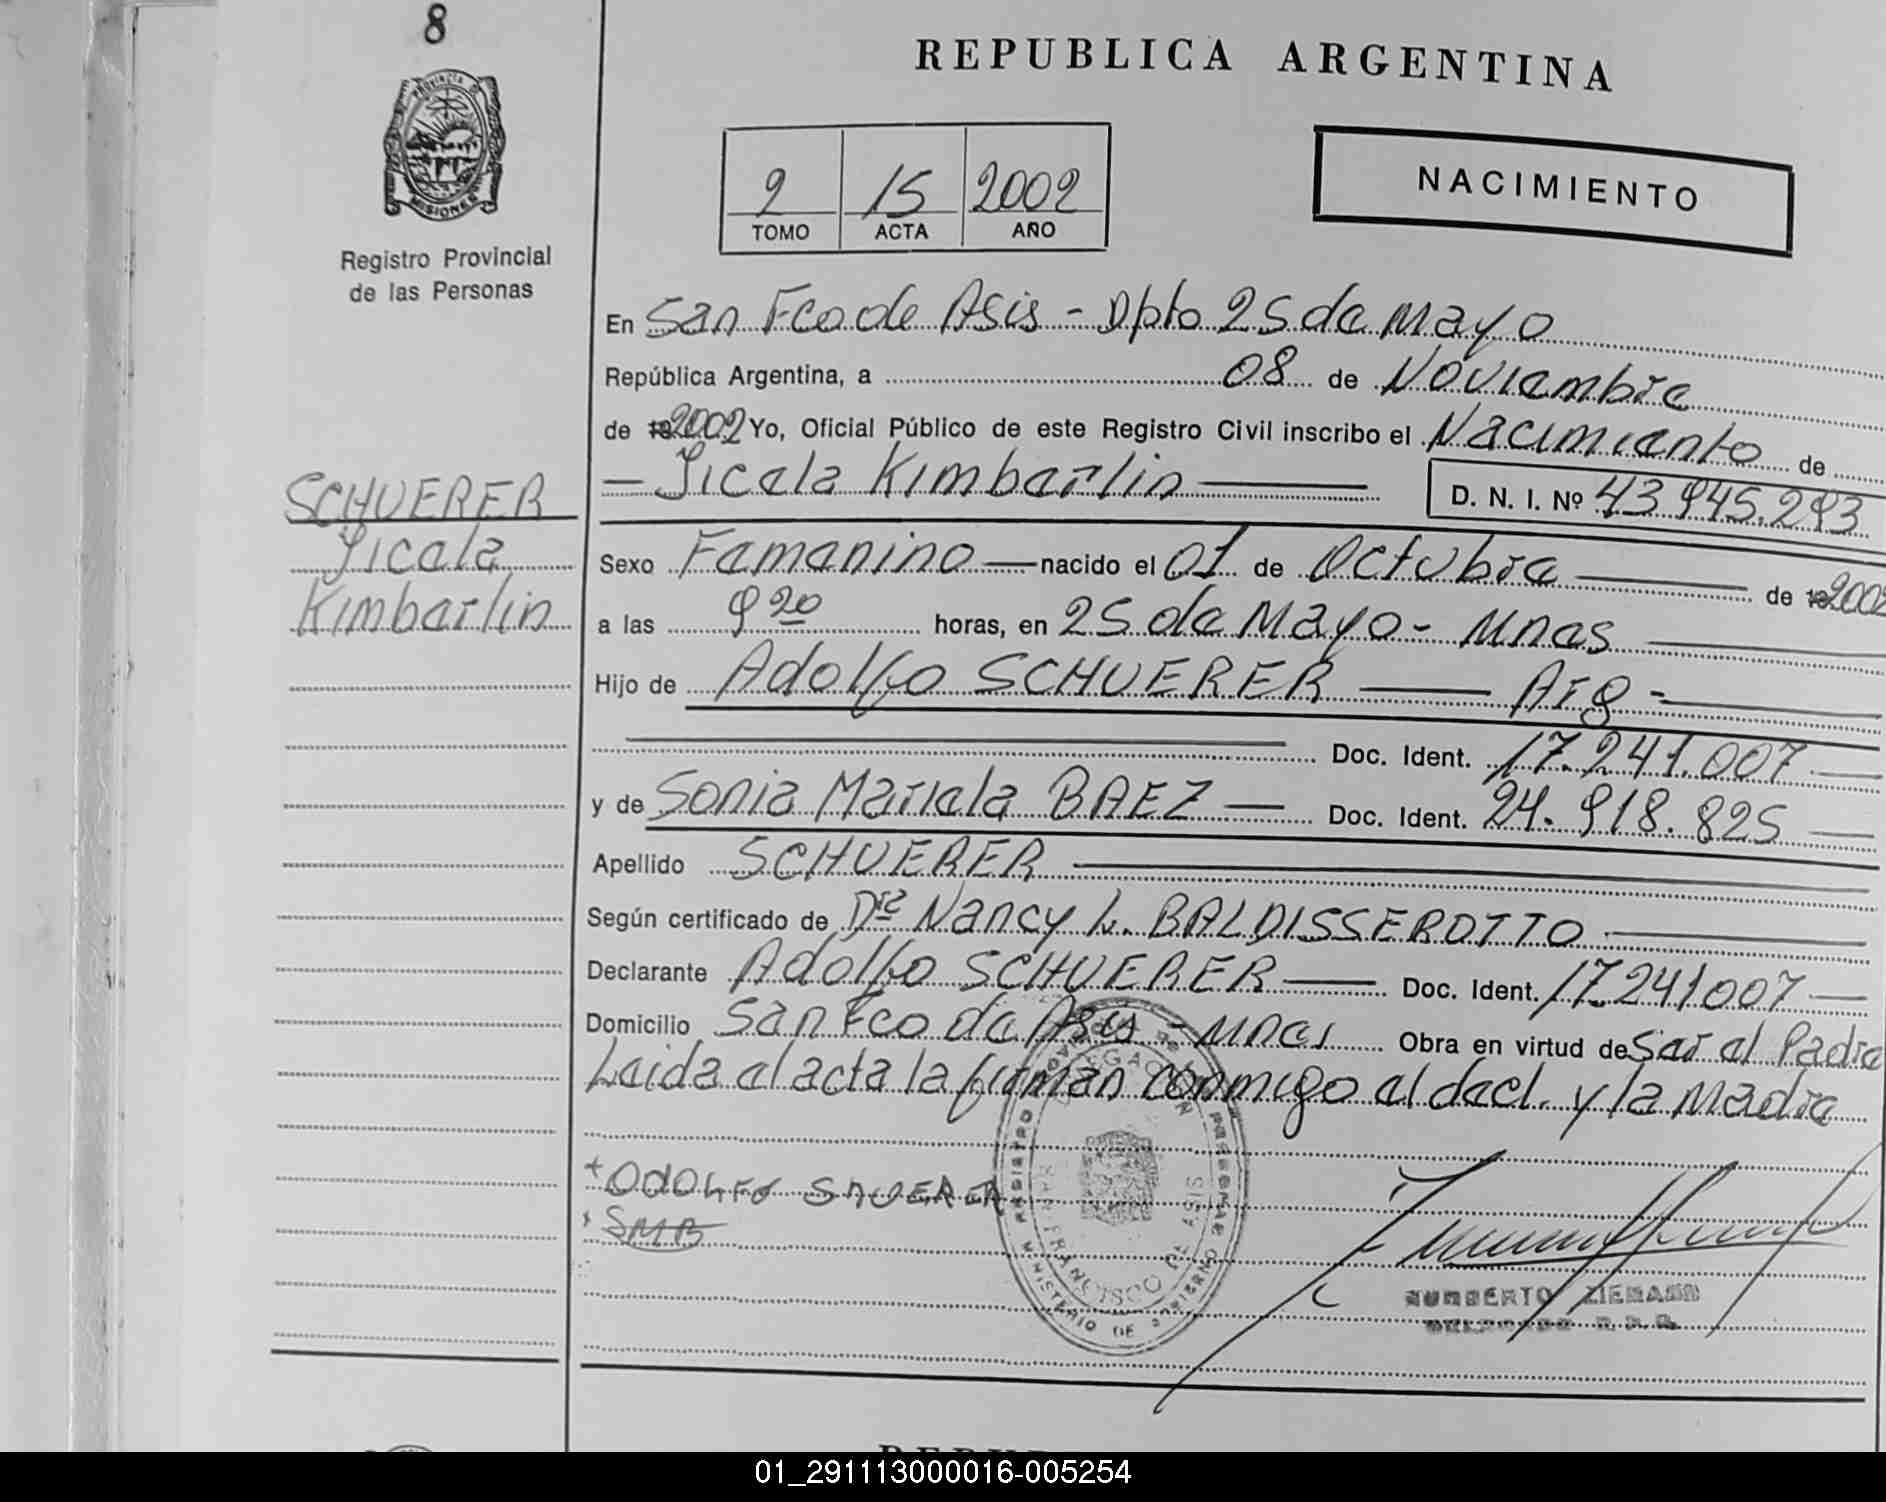 8
REPUBLICA ARGENTINA
PROVINCIA DE
MISIONES
Registro Provincial
de las Personas
2 15 2002
TOMO ACTA AÑO
NACIMIENTO
En San Fco de Asis - Dpto 25 de Mayo
República Argentina, a 08 de Noviembre
de 2002 Yo, Oficial Público de este Registro Civil inscribo el Nacimiento de
— Jicela Kimberlin —
D. N. I. Nº 43.945.293
SCHUERER
Jicela
Kimberlin
Sexo Femenino — nacido el 01 de Octubre — de 2002
a las 9 20 horas, en 25 de Mayo - Mnes —
Hijo de Adolfo SCHUERER — Arg - —
Doc. Ident. 17.241.007 —
y de Sonia Mariela BAEZ — Doc. Ident. 24.918.825 —
Apellido SCHUERER —
Según certificado de Dra Nancy L. BALDISSEROTTO —
Declarante Adolfo SCHUERER — Doc. Ident. 17241007 —
Domicilio San Fco de Asis - Mnes Obra en virtud de Ser el Padre
Leida el acta la firman conmigo el decl. y la Madre
+ ODOLFO SHUERER
SMB
REGISTRO
SAN FRANCISCO DE ASIS
MINISTERIO DE GOBIERNO
HUMBERTO ZIEMANN
DELEGADO R.P.P.
01_291113000016-005254